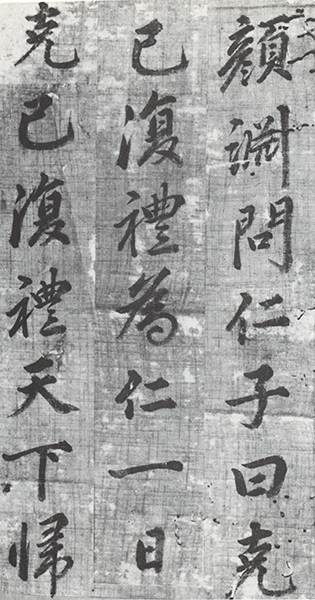 顔渊問仁子曰克
己復禮為仁一日
克己復禮天下帰